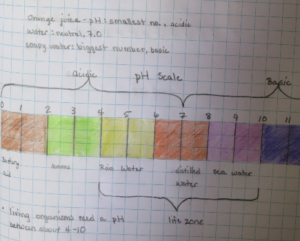 orange juice - pH: smallest no., acidic
water: neutral, 7.0
soapy water: biggest number, basic
acidic pH Scale Basic
0 1 2 3 4 5 6 7 8 9 10 11
Rain Water distilled sea water
water
* living organisms need a pH life zone
between about 4-10